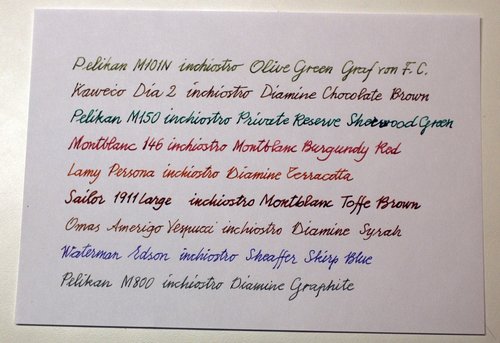 Pelikan M101N inchiostro Olive Green Graf von F.C.
Kaweco Dia 2 inchiostro Diamine Chocolate Brown
Pelikan M150 inchiostro Private Reserve Sherwood Green
Montblanc 146 inchiostro Montblanc Burgundy Red
Lamy Persona inchiostro Diamine Terracotta
Sailor 1911 Large inchiostro Montblanc Toffe Brown
Omas Amerigo Vespucci inchiostro Diamine Syrah
Waterman Edson inchiostro Sheaffer Skirp Blue
Pelikan M800 inchiostro Diamine Graphite